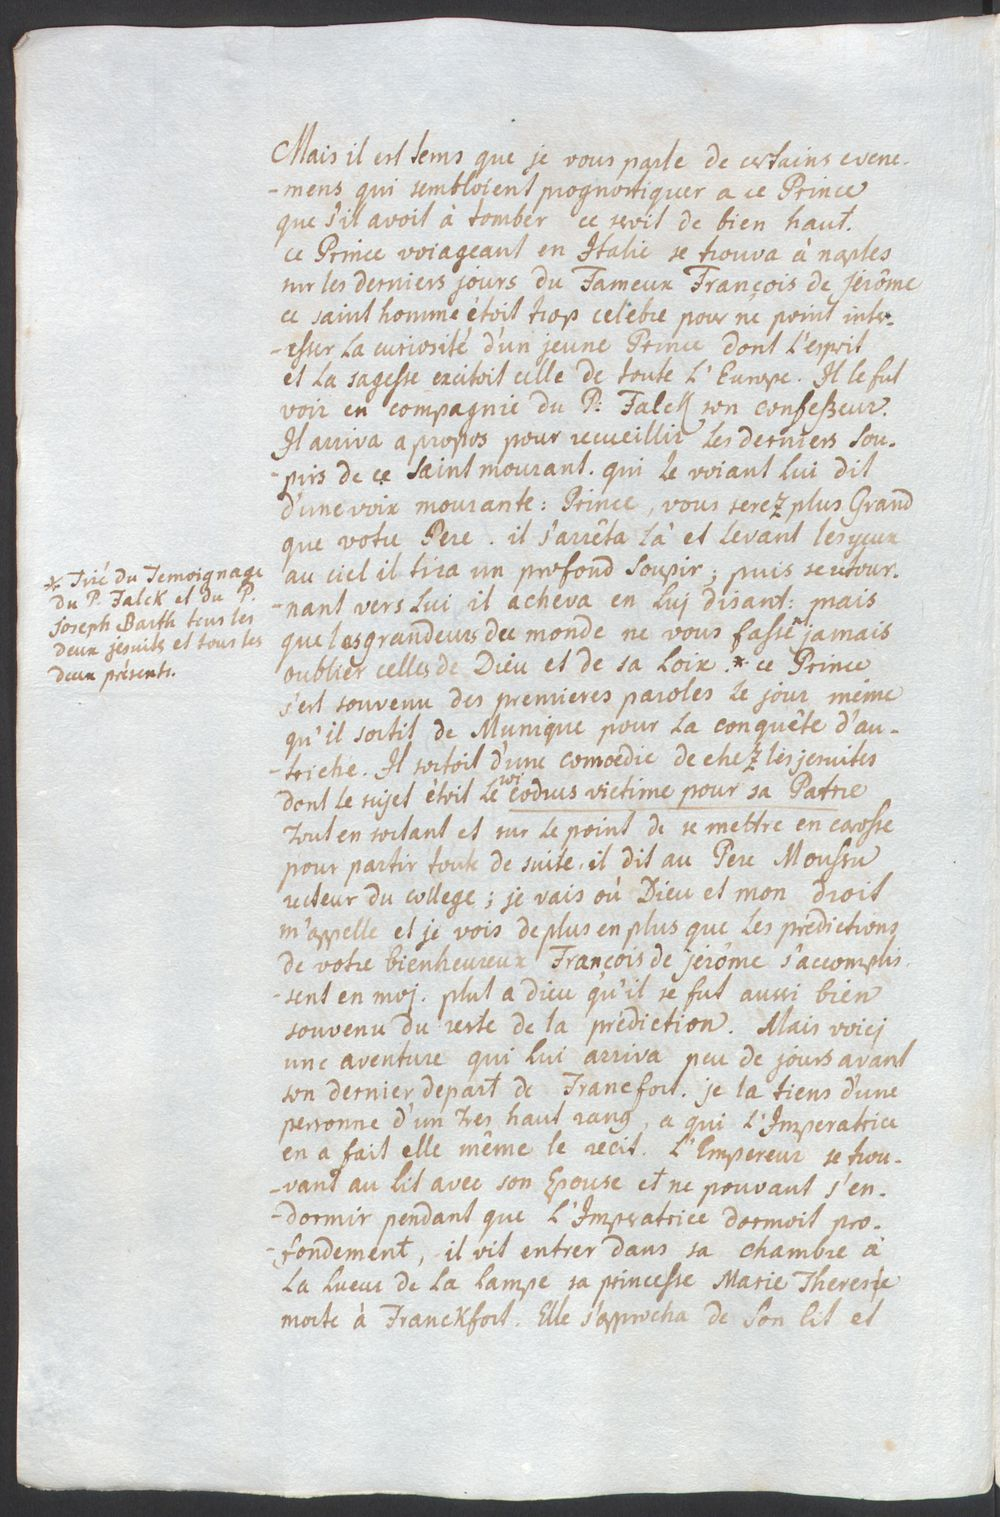 Mais il est tems que je vous parle de certains evene-
-mens qui sembloient prognostiquer a ce Prince
que s'il avoit à tomber ce seroit de bien haut.
ce Prince voiageant en Italie se trouva à naples
sur les derniers jours du Fameux François de jérôme
ce saint homme étoit trop celebre pour ne point inter-
-esser La curiosité d'un jeune Prince dont L'esprit
et La sagesse excitoit celle de toute L'Europe. Il le fut
voir en compagnie du P: Falck son confesseur.
Il arriva a propos pour recueillir Les derniers sou-
-pirs de ce saint mourant. qui le voiant lui dit
d'une voix mourante: Prince, vous serez plus Grand
que votre Pere. il s'arrêta là et levant les yeux
au ciel il tira un profond soupir; puis se retour-
-nant vers Lui il acheva en Luj disant: mais
que les grandeurs du monde ne vous fassent jamais
oublier celles de Dieu et de sa Loix. * ce Prince
s'est souvenu des premieres paroles le jour même
qu'il sortit de Munique pour La conquête d'au-
-triche. Il sortoit d'une comoedie de chez les jesuites
dont le sujet étoit Le roi codrus victime pour sa Patrie
tout en sortant et sur le point de se mettre en carosse
pour partir toute de suite. il dit au Pere Moussu
recteur du college; je vais où Dieu et mon droit
m'appelle et je vois de plus en plus que Les prédictions
de votre bienheureux François de jérôme s'accomplis-
-sent en moj. plut a Dieu qu'il se fut aussi bien
souvenu du reste de la prédiction. Mais voicj
une aventure qui lui arriva peu de jours avant
son dernier depart de Francfort. je la tiens d'une
personne d'un tres haut rang, a qui L'Imperatrice
en a fait elle même le recit. L'Empereur se trou-
-vant au lit avec son Epouse et ne pouvant s'en-
-dormir pendant que L'Imperatrice dormoit pro-
-fondement, il vit entrer dans sa chambre à
La Lueur de La Lampe sa princesse Marie Therese
morte à Franckfort. Elle s'approcha de son lit et
* Tiré du Temoignage
du P. Falck et du P.
Joseph Barth tous les
deux jésuits et tous les
deux présents.